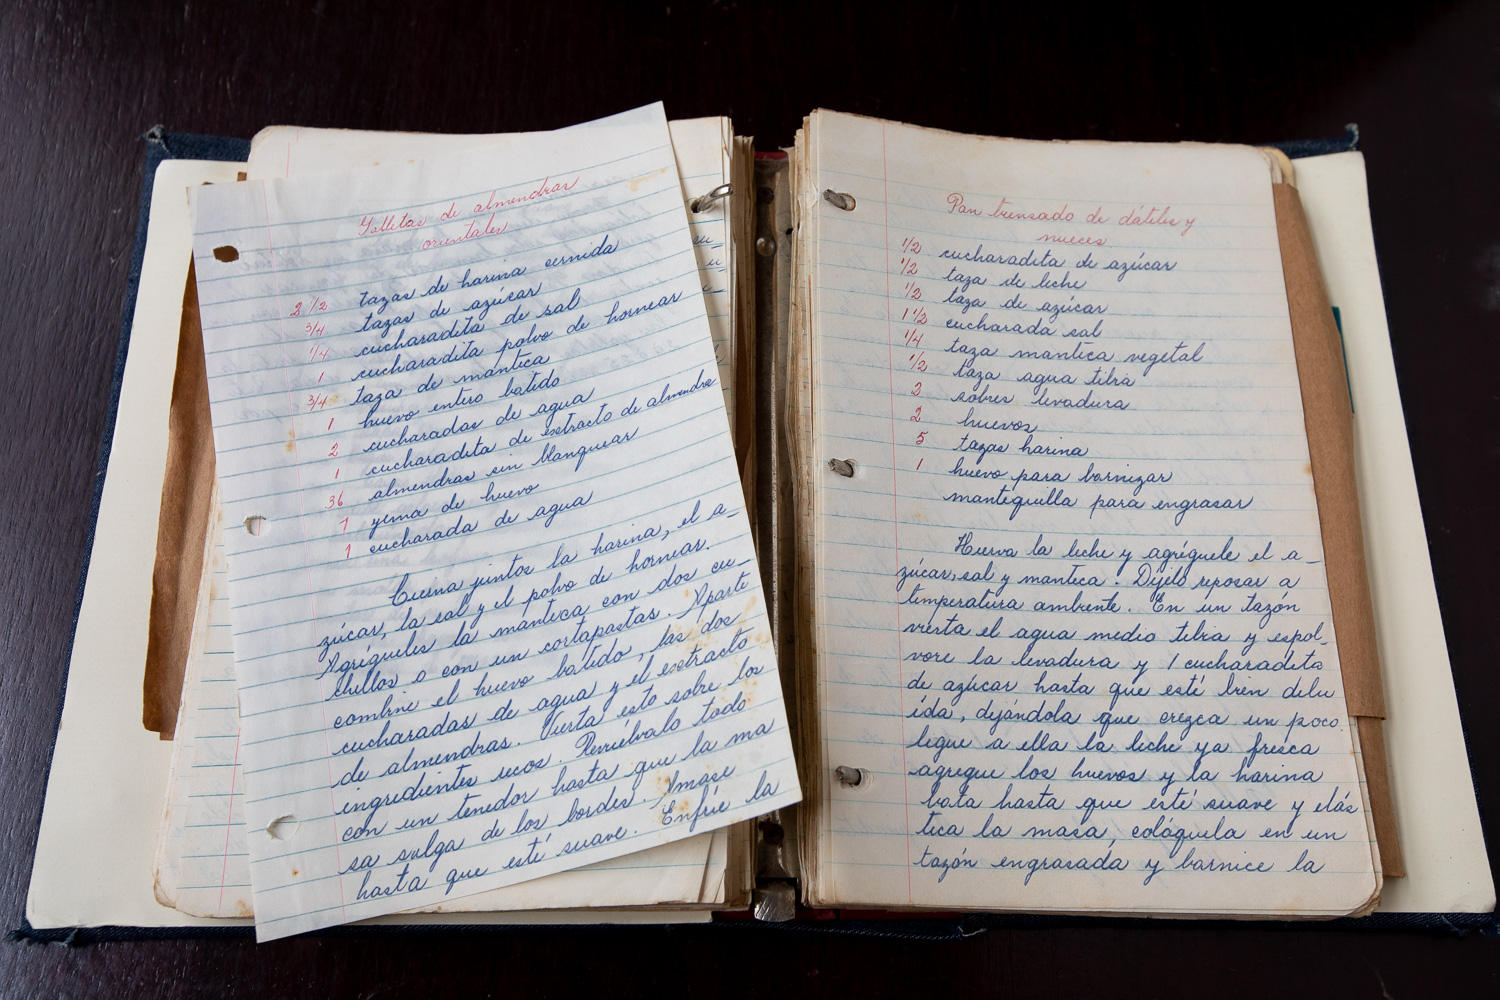 Galletas de almendras
orientales
2 1/2 tazas de harina cernida
3/4 tazas de azúcar
1/4 cucharadita de sal
1 cucharadita polvo de hornear
3/4 taza de manteca
1 huevo entero batido
2 cucharadas de agua
1 cucharadita de extracto de almendra
36 almendras sin blanquear
1 yema de huevo
1 cucharada de agua
Cierna juntos la harina, el a-
zúcar, la sal y el polvo de hornear.
Agrégueles la manteca con dos cu-
chillos o con un cortapastas. Aparte
combine el huevo batido, las dos
cucharadas de agua y el extracto
de almendras. Vierta esto sobre los
ingredientes secos. Revuélvalo todo
con un tenedor hasta que la ma
sa salga de los bordes. Amase
hasta que esté suave. Enfríe la
Pan trensado de dátiles y
nueces
1/2 cucharadita de azúcar
1/2 taza de leche
1/2 taza de azúcar
1 1/2 cucharada sal
1/4 taza manteca vegetal
1/2 taza agua tibia
2 sobres levadura
2 huevos
5 tazas harina
1 huevo para barnizar
mantequilla para engrasar
Hierva la leche y agréguele el a-
zúcar, sal y manteca. Déjelo reposar a
temperatura ambiente. En un tazón
vierta el agua medio tibia y espol-
vore la levadura y 1 cucharadita
de azúcar hasta que esté bien delu
ída, dejándola que crezca un poco.
legue a ella la leche ya fresca
agregue los huevos y la harina
bata hasta que esté suave y elás
tica la masa, colóquela en un
tazón engrasada y barnice la